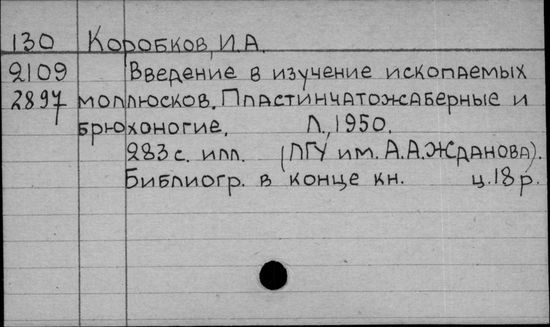 130 Коробков, И.А.
2109 Введение в изучение ископаемых
2897 моллюсков. Пластинчатожаберные и
брюхоногие. Л., 1950.
283 с. илл. (ЛГУ им. А.А.Жданова).
Библиогр. в конце кн. ц. 18 р.